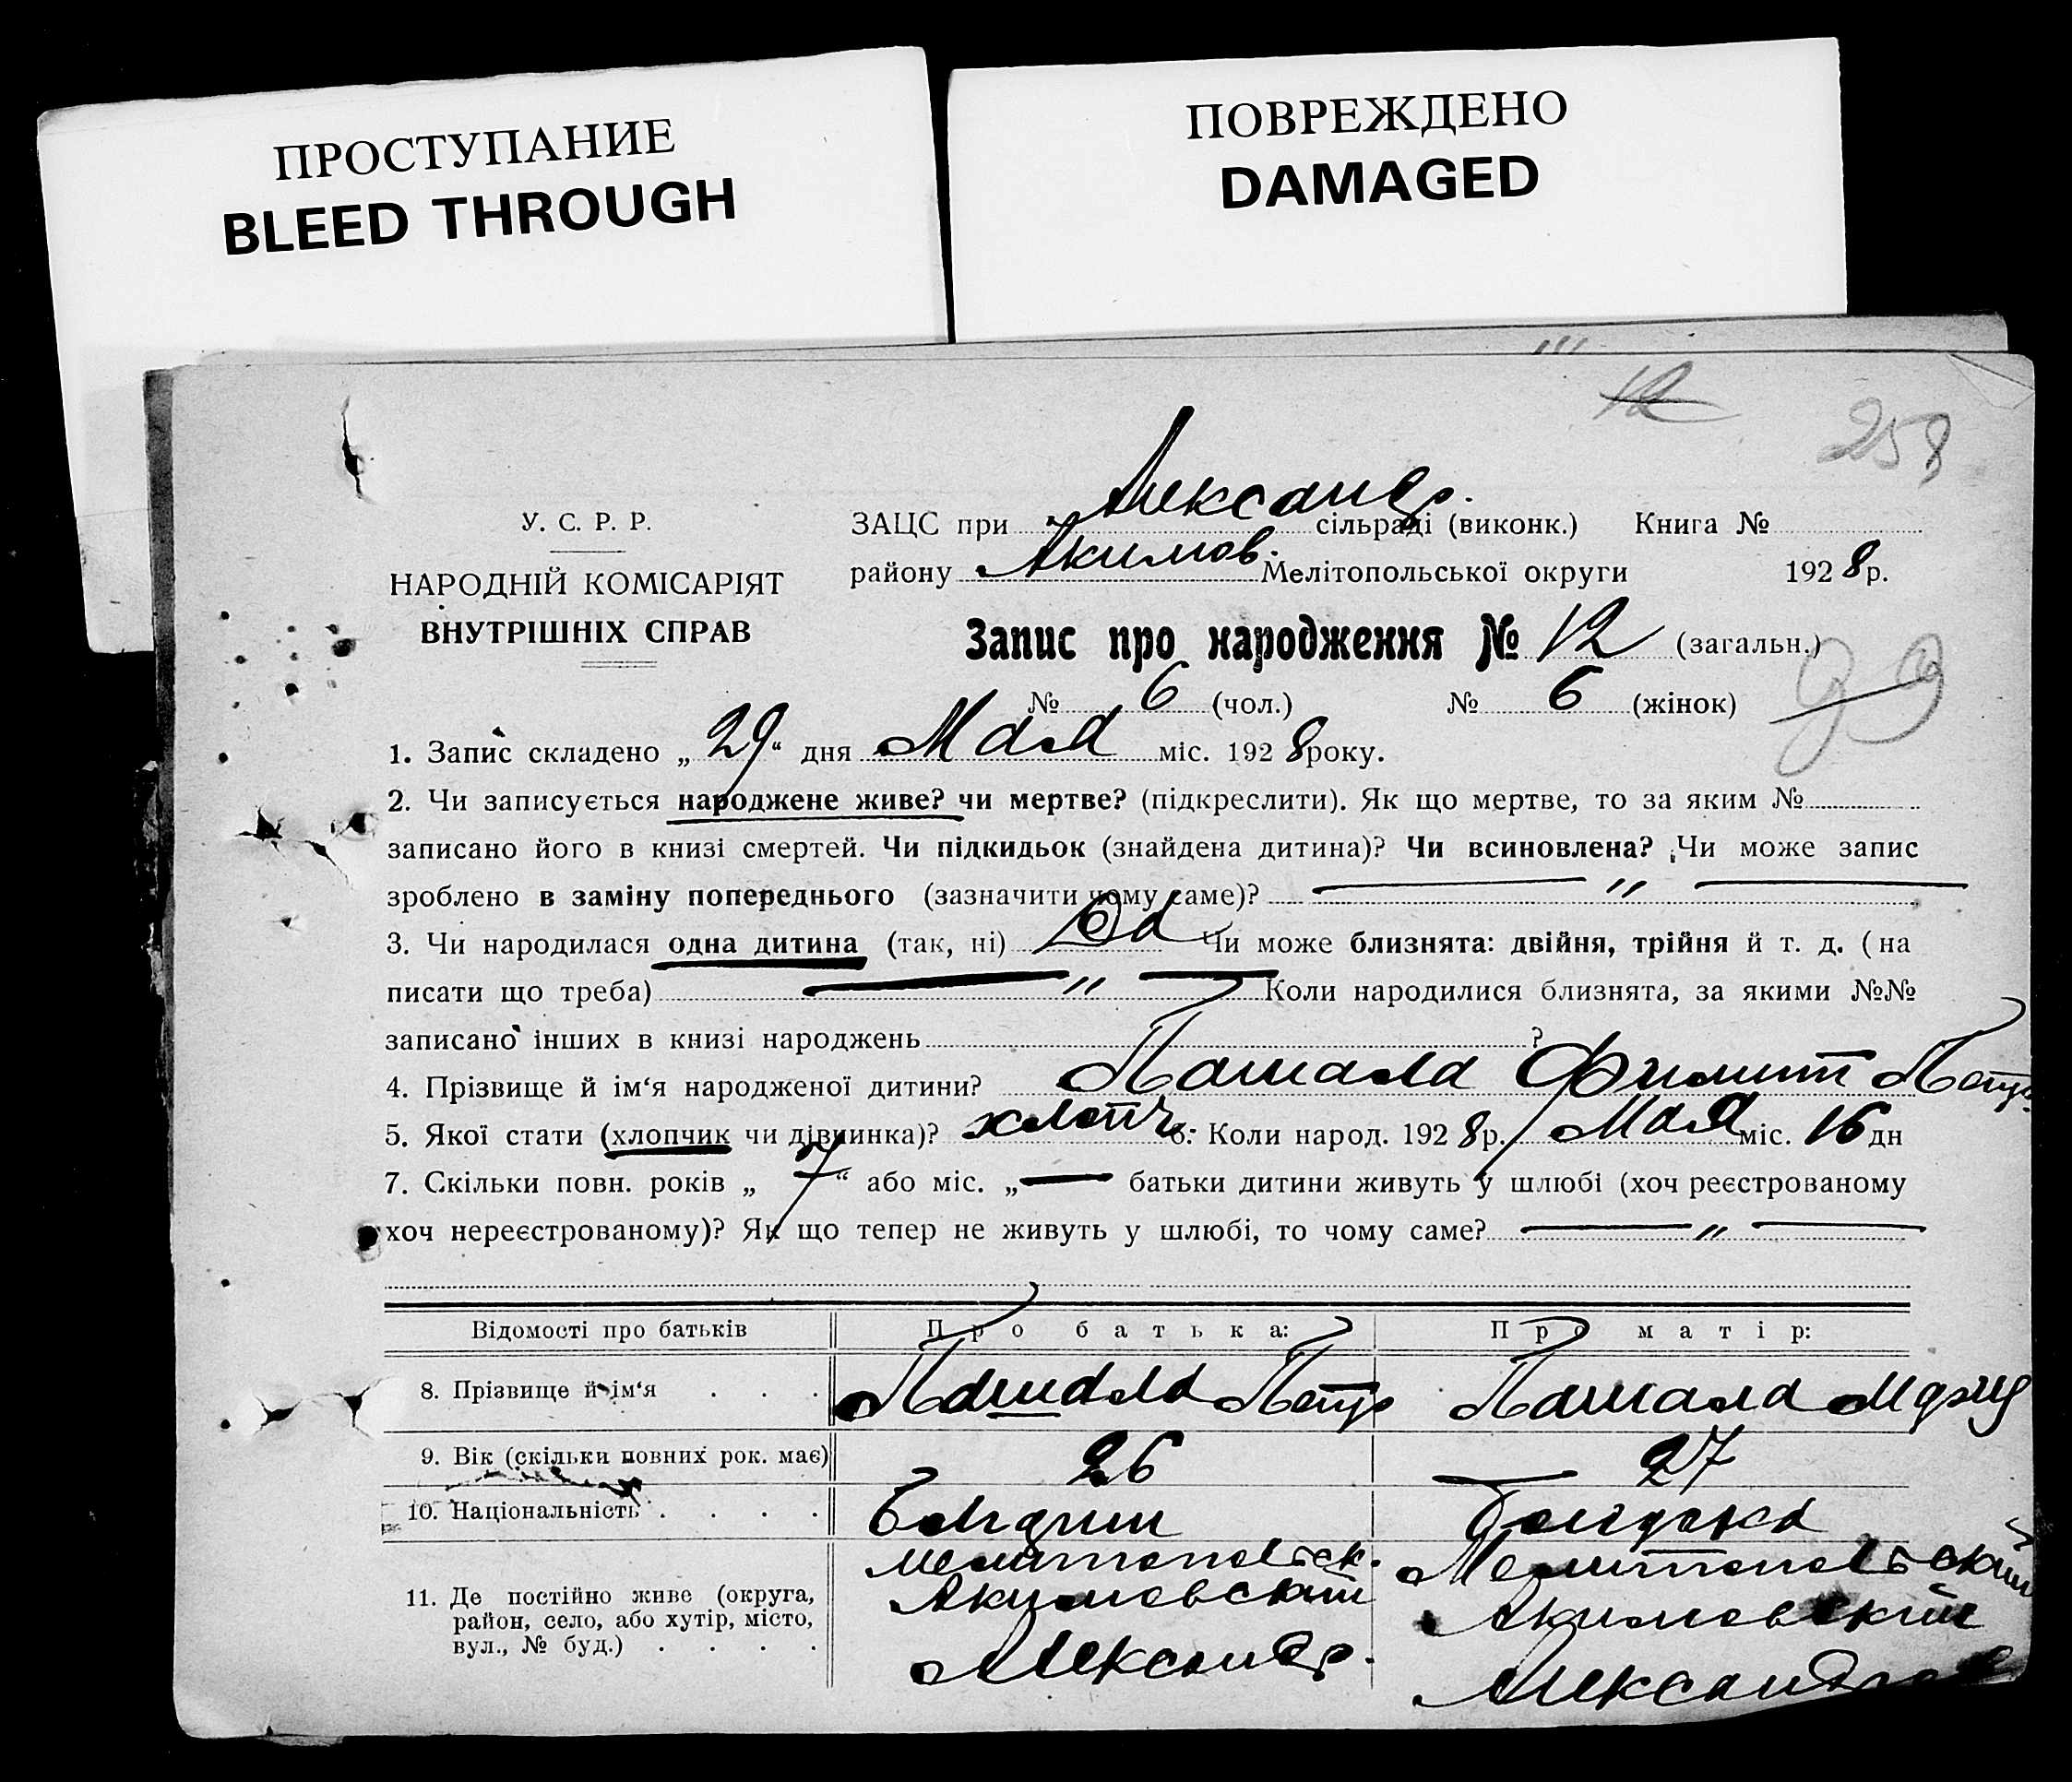 ПРОСТУПАНИЕ
BLEED THROUGH
ПОВРЕЖДЕНО
DAMAGED
12
258
У. С. Р. Р.
НАРОДНІЙ КОМІСАРІЯТ
ВНУТРІШНІХ СПРАВ
ЗАЦС при Александр. сільраді (виконк.) Книга №
району Акимов. Мелітопольської округи 1928 р.
Запис про народження № 12 (загальн.)
№ 6 (чол.) № 6 (жінок)
1. Запис складено „29“ дня Мая міс. 1928 року.
2. Чи записується народжене живе? чи мертве? (підкреслити). Як що мертве, то за яким №
записано його в книзі смертей. Чи підкидьок (знайдена дитина)? Чи всиновлена? Чи може запис
зроблено в заміну попереднього (зазначити чому саме)? — „ —
3. Чи народилася одна дитина (так, ні) Чи може близнята: двійня, трійня й т. д. (на
писати що треба) — „ — Коли народилися близнята, за якими №№
записано інших в книзі народжень ?
4. Прізвище й ім‘я народженої дитини? Пашала Филипп Петр
5. Якої стати (хлопчик чи дівчинка)? хлопч. 6. Коли народ. 1928 р. Мая міс. 16 дн
7. Скільки повн. років „7“ або міс. „— батьки дитини живуть у шлюбі (хоч реєстрованому
хоч нереєстрованому)? Як що тепер не живуть у шлюбі, то чому саме? — „ —
Відомості про батьків Про батька: Про матір:
8. Прізвище й ім‘я . . . Пашала Петр Пашала
9. Вік (скільки повних рок. має) 26 — 27
10. Національність . . . . Болгарин Болгарка
11. Де постійно живе (округа, район, село, або хутір, місто, вул., № буд.) . . . .
Мелитопольск. Мелитопольский
Акимовский Акимовский
Александр.